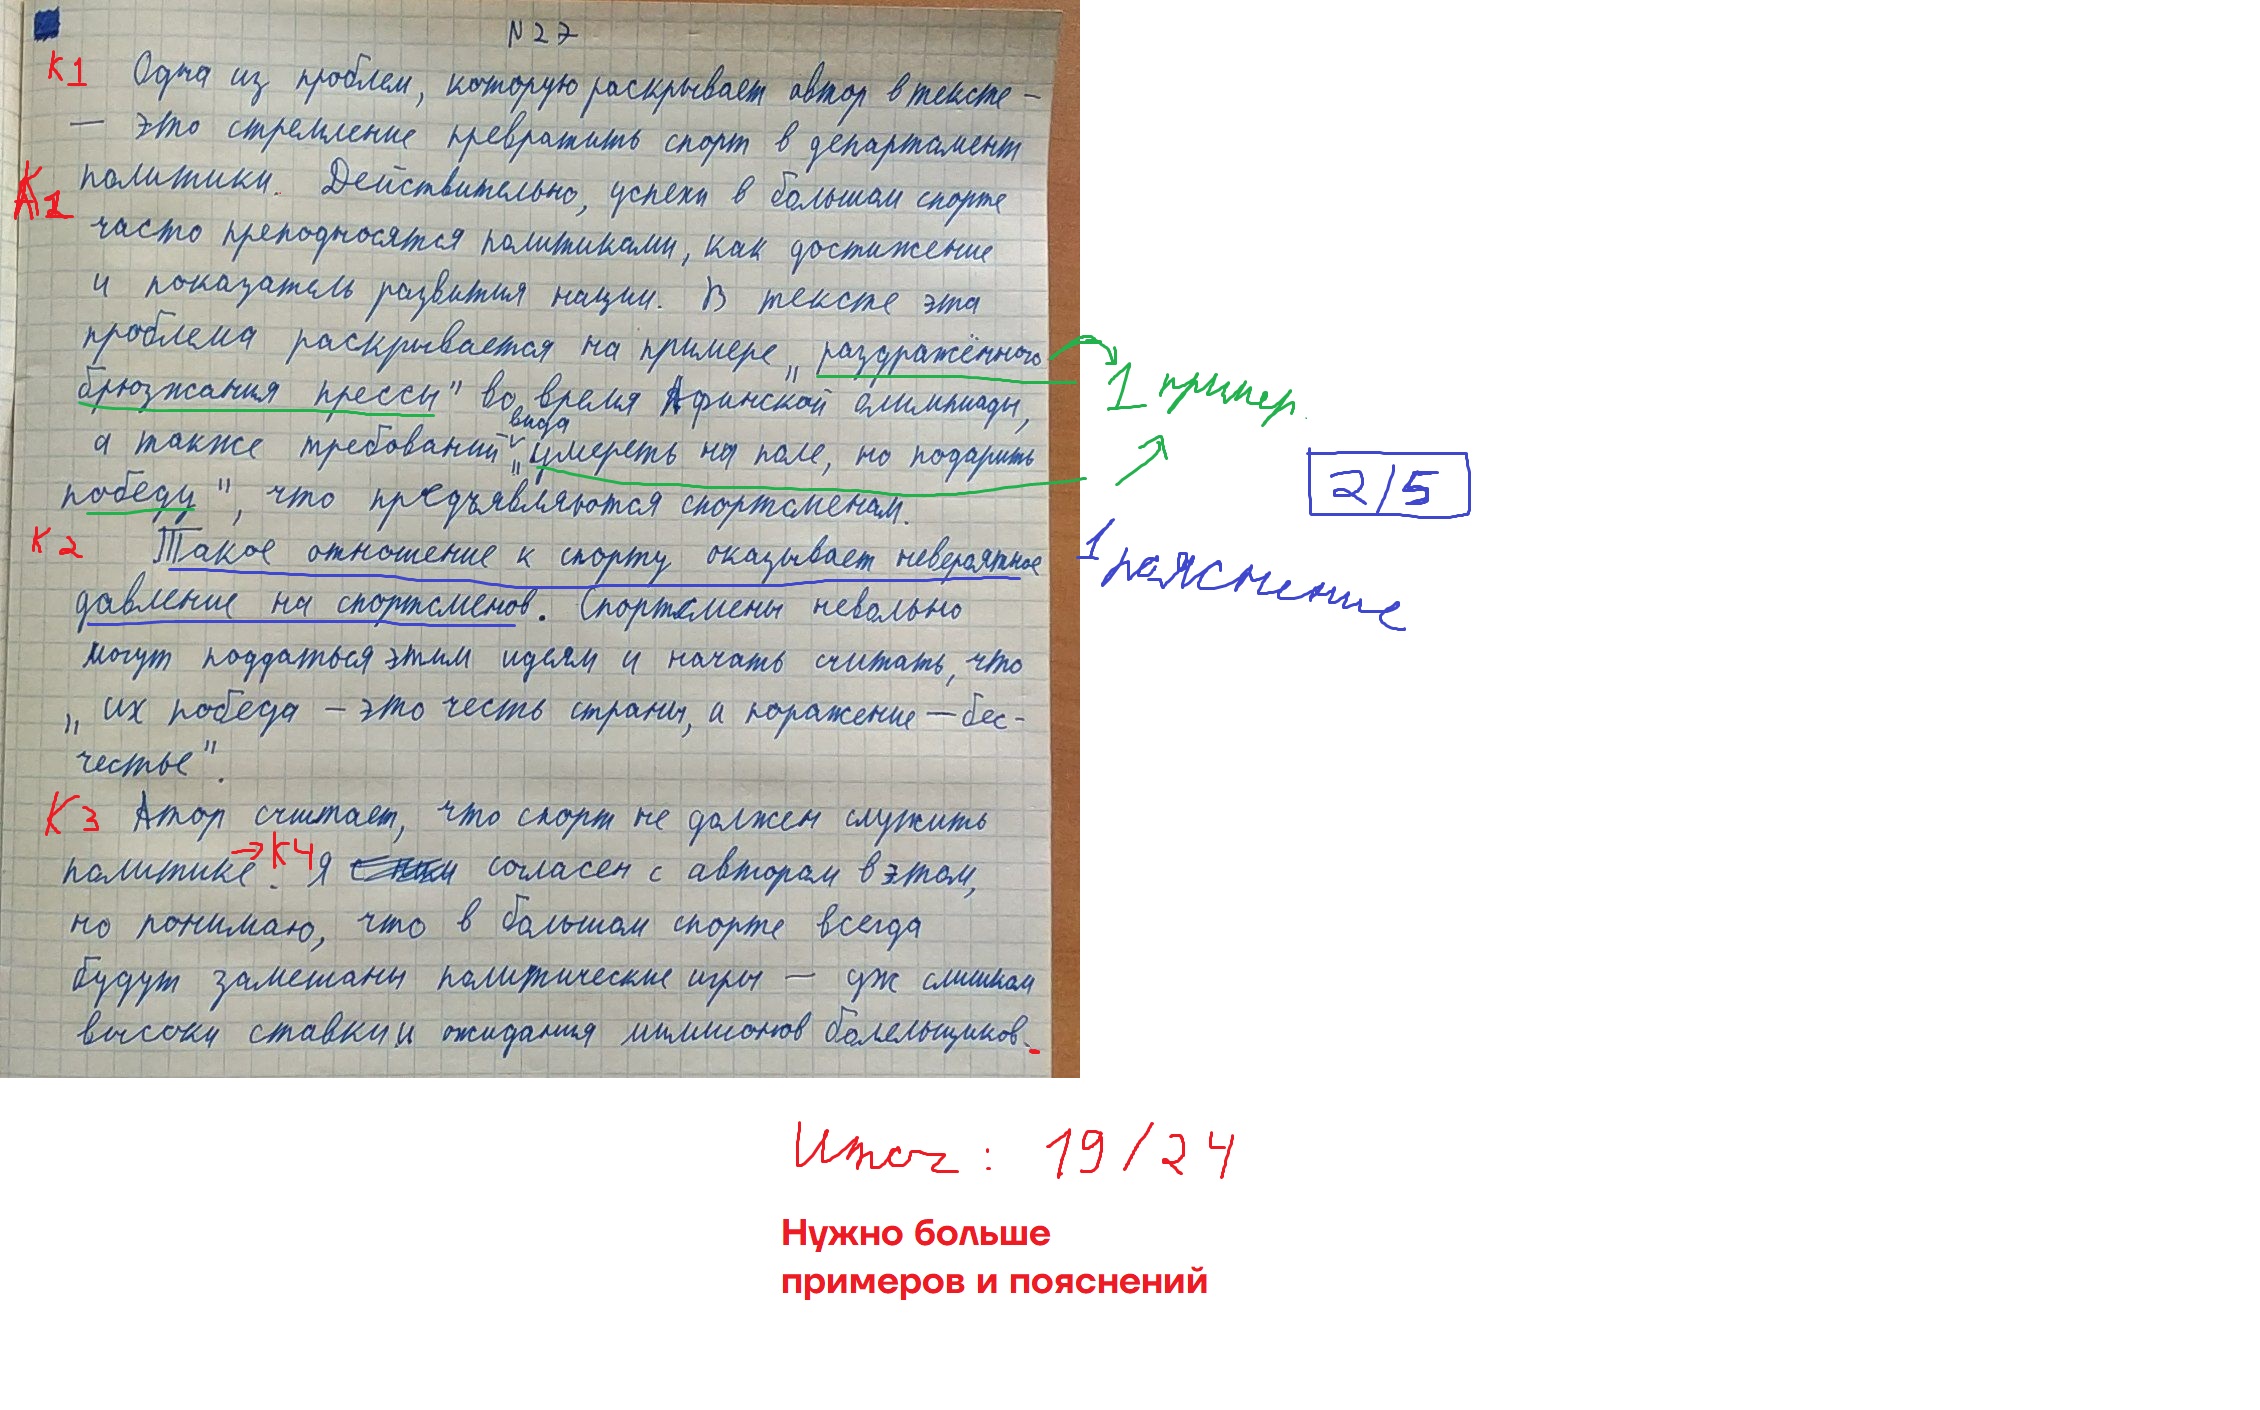 N27
К1 Одна из проблем, которую раскрывает автор в тексте –
— это стремление превратить спорт в департамент
К1 политики. Действительно, успехи в большом спорте
часто преподносятся политиками, как достижение
и показатель развития нации. В тексте эта
проблема раскрывается на примере „раздражённого
брюзжания прессы" во время Афинской олимпиады,
1 пример
вида
а также требований „умереть на поле, но подарить
победу", что предъявляются спортсменам.
2/5
К2 Такое отношение к спорту оказывает невероятное
1 пояснение
давление на спортсменов. Спортсмены невольно
могут поддаться этим идеям и начать считать, что
„их победа – это честь страны, а поражение – бес-
честье".
К3 Атор считает, что спорт не должен служить
политике. → К4 Я согласен с автором в этом,
но понимаю, что в большом спорте всегда
будут замешаны политические игры — уж слишком
высоки ставки и ожидания миллионов болельщиков.
Итог: 19/24
Нужно больше
примеров и пояснений